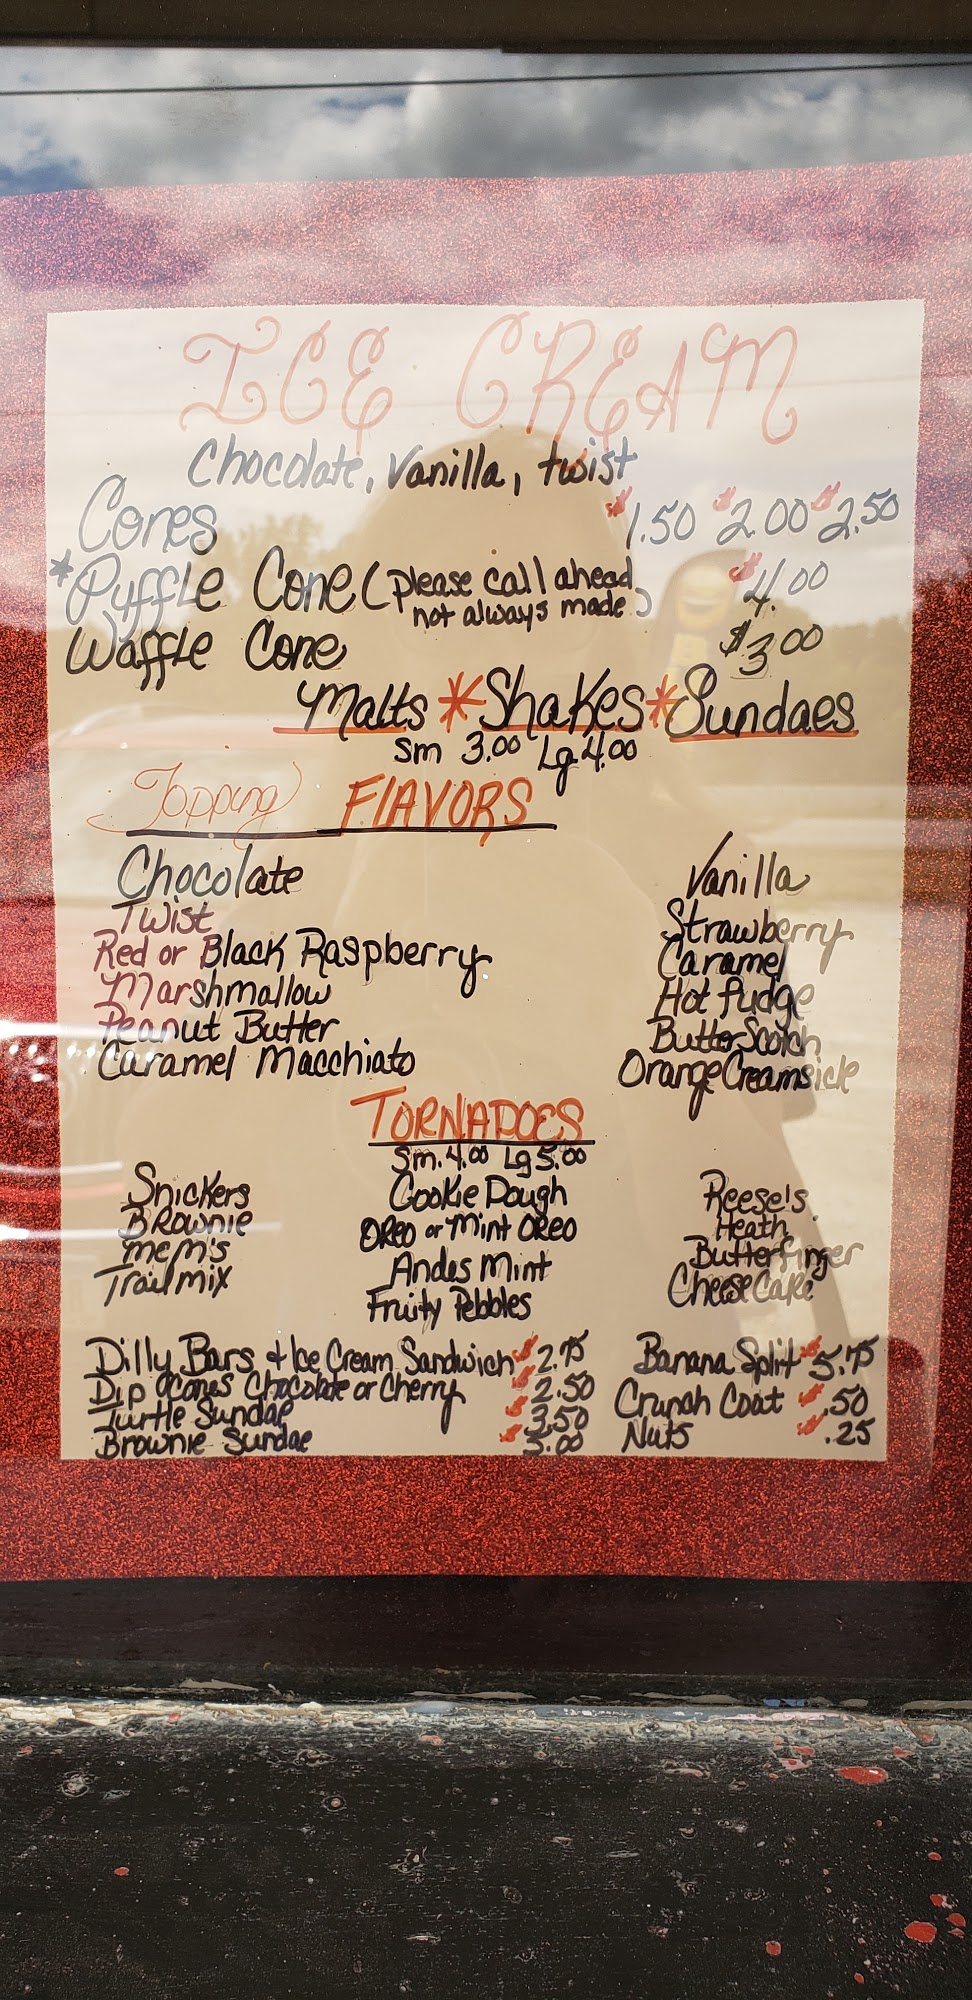 ICE CREAM
Chocolate, Vanilla, twist
Cones $1.50 $2.00 $2.50
*Puffle Cone (please call ahead $4.00
not always made)
Waffle Cone $3.00
Malts * Shakes * Sundaes
Sm 3.00 Lg 4.00
Topping FLAVORS
Chocolate Vanilla
Twist Strawberry
Red or Black Raspberry Caramel
Marshmallow Hot fudge
Peanut Butter ButterScotch
Caramel Macchiato Orange Creamsicle
TORNADOES
Sm. 4.00 Lg 5.00
Snickers Cookie Dough Reese's
Brownie OREO or Mint OREO Heath
MEM's Andes Mint Butterfinger
Trail mix Fruity Pebbles Cheese Cake
Dilly Bars + Ice Cream Sandwich $2.75 Banana Split $5.75
Dip Cones Chocolate or Cherry $2.50 Crunch Coat $.50
Turtle Sundae $3.50 Nuts $.25
Brownie Sundae $3.00